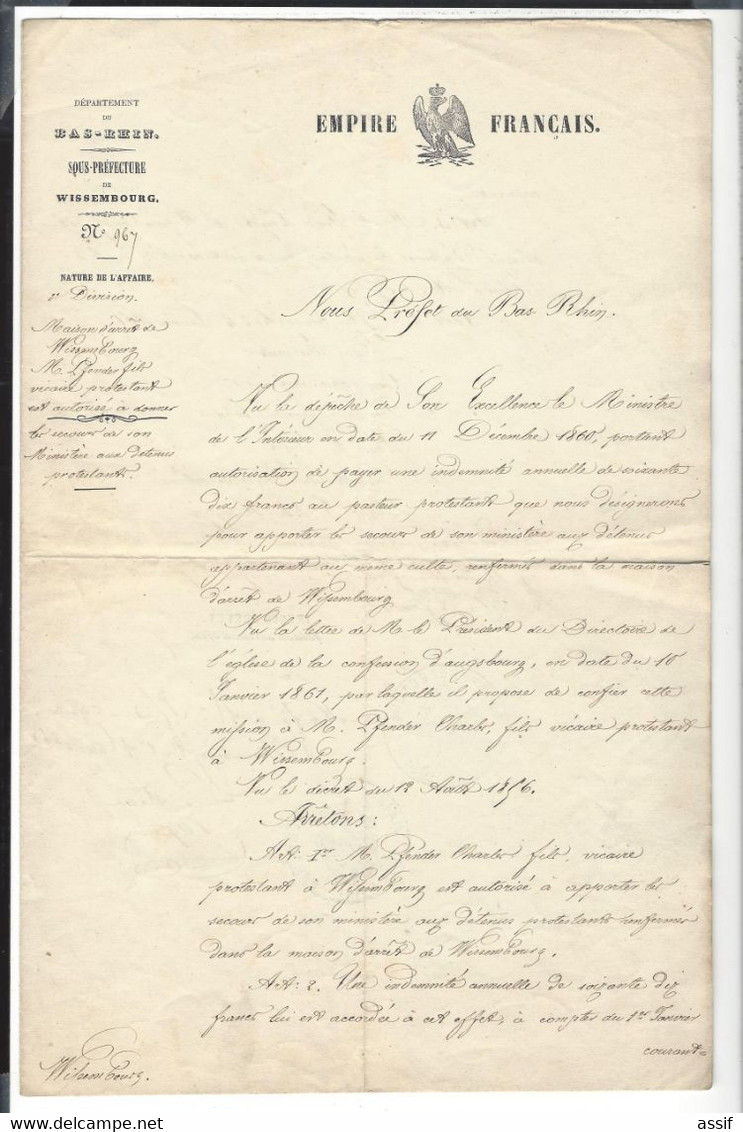 DÉPARTEMENT
DU
BAS-RHIN.
SOUS-PRÉFECTURE
DE
WISSEMBOURG.
N° 967
NATURE DE L'AFFAIRE.
Division.
Maison d'arrêt de
Wissembourg
M. Pfender fils
vicaire protestant
est autorisé à donner
les secours de son
Ministère aux détenus
protestants.
EMPIRE FRANÇAIS.
Nous Préfet du Bas Rhin.
Vu la dépêche de Son Excellence le Ministre
de l'Intérieur en date du 11 Décembre 1860, portant
autorisation de payer une indemnité annuelle de soixante
dix francs au pasteur protestant que nous désignerons
pour apporter les secours de son ministère aux détenus
appartenant au même culte, renfermés dans la maison
d'arrêt de Wissembourg
Vu la lettre de M. le Président du Directoire de
l'église de la confession d'augsbourg, en date du 10
Janvier 1861, par laquelle il propose de confier cette
mission à M. Pfender Charles, fils vicaire protestant
à Wissembourg.
Vu le décret du 12 Août 1856.
Arrêtons:
Art: 1er M. Pfender Charles fils, vicaire
protestant à Wissembourg est autorisé à apporter les
secours de son ministère aux détenus protestants renfermés
dans la maison d'arrêt de Wissembourg.
Art: 2. Une indemnité annuelle de soixante dix
francs lui est accordée à cet effet, à compter du 1er Janvier
courant=
Wissembourg.
assif